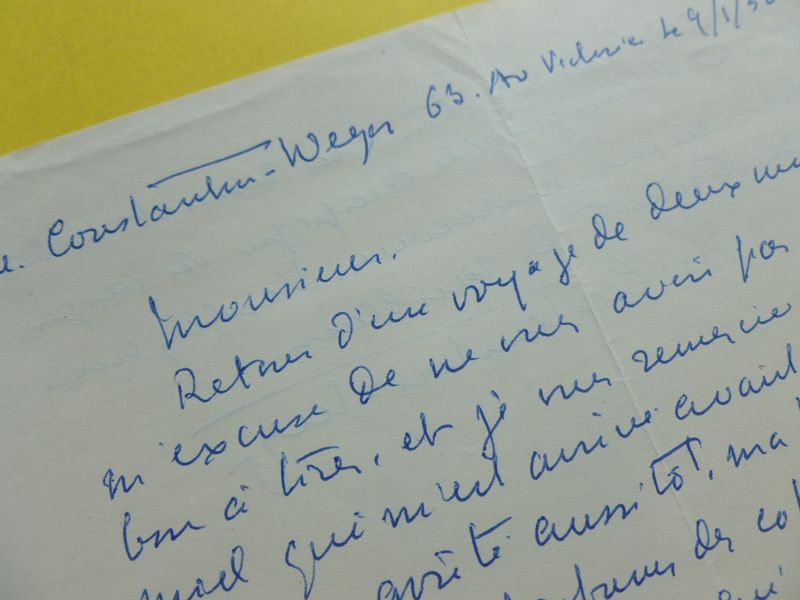 Constantin-Weyer 63. Av Victoria le 9/1/
Monsieur.
Retour d'un voyage de deux
m'excuse de ne vous avoir pas
bon à tirer, et je vous remercie
qui m'est arrivé avant
arrêté aussitôt, ma
des